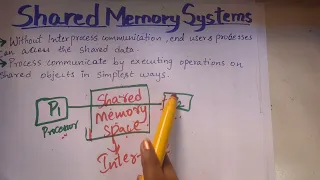 Shared Memory Systems
• Without Interprocess communication, end users processes
can access the shared data.
• Process communicate by executing operations on
shared objects in simplest ways.
P1
Shared
Memory
Space
Processor